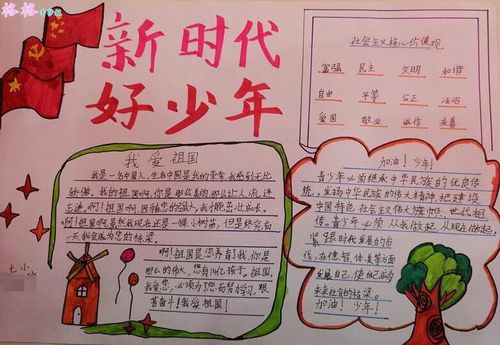 格格
新时代
好少年
社会主义核心价值观
富强 民主 文明 和谐
自由 平等 公正 法治
爱国 敬业 诚信 友善
我爱祖国
我是一名中国人,生在中国是我的荣幸,我感到无比
骄傲。我的祖国啊,你是那么美丽,那么让人流连
忘返。啊!祖国啊,因稀您的强大,我才能茁壮成长。
啊!祖国啊,虽然我现在还是一棵小树苗,但是终究有
一天我会成为您的栋梁。
啊!祖国是您养育了我,你是
那么的伟大,您有14亿孩子。祖国,
我爱您,必须为了您而努力学习,艰
苦奋斗!我爱祖国!
加油!少年!
青少年必须继承中华民族的优良传
统,发扬中华民族的伟大精神,把建设
中国特色社会主义伟大旗帜,世代相
传。青少年必须从我做起,从现在做起,
紧跟时代发展的步
伐,在德智体美等方面
发展自己,使自己成为
未来社会的栋梁。
加油!少年!
七小